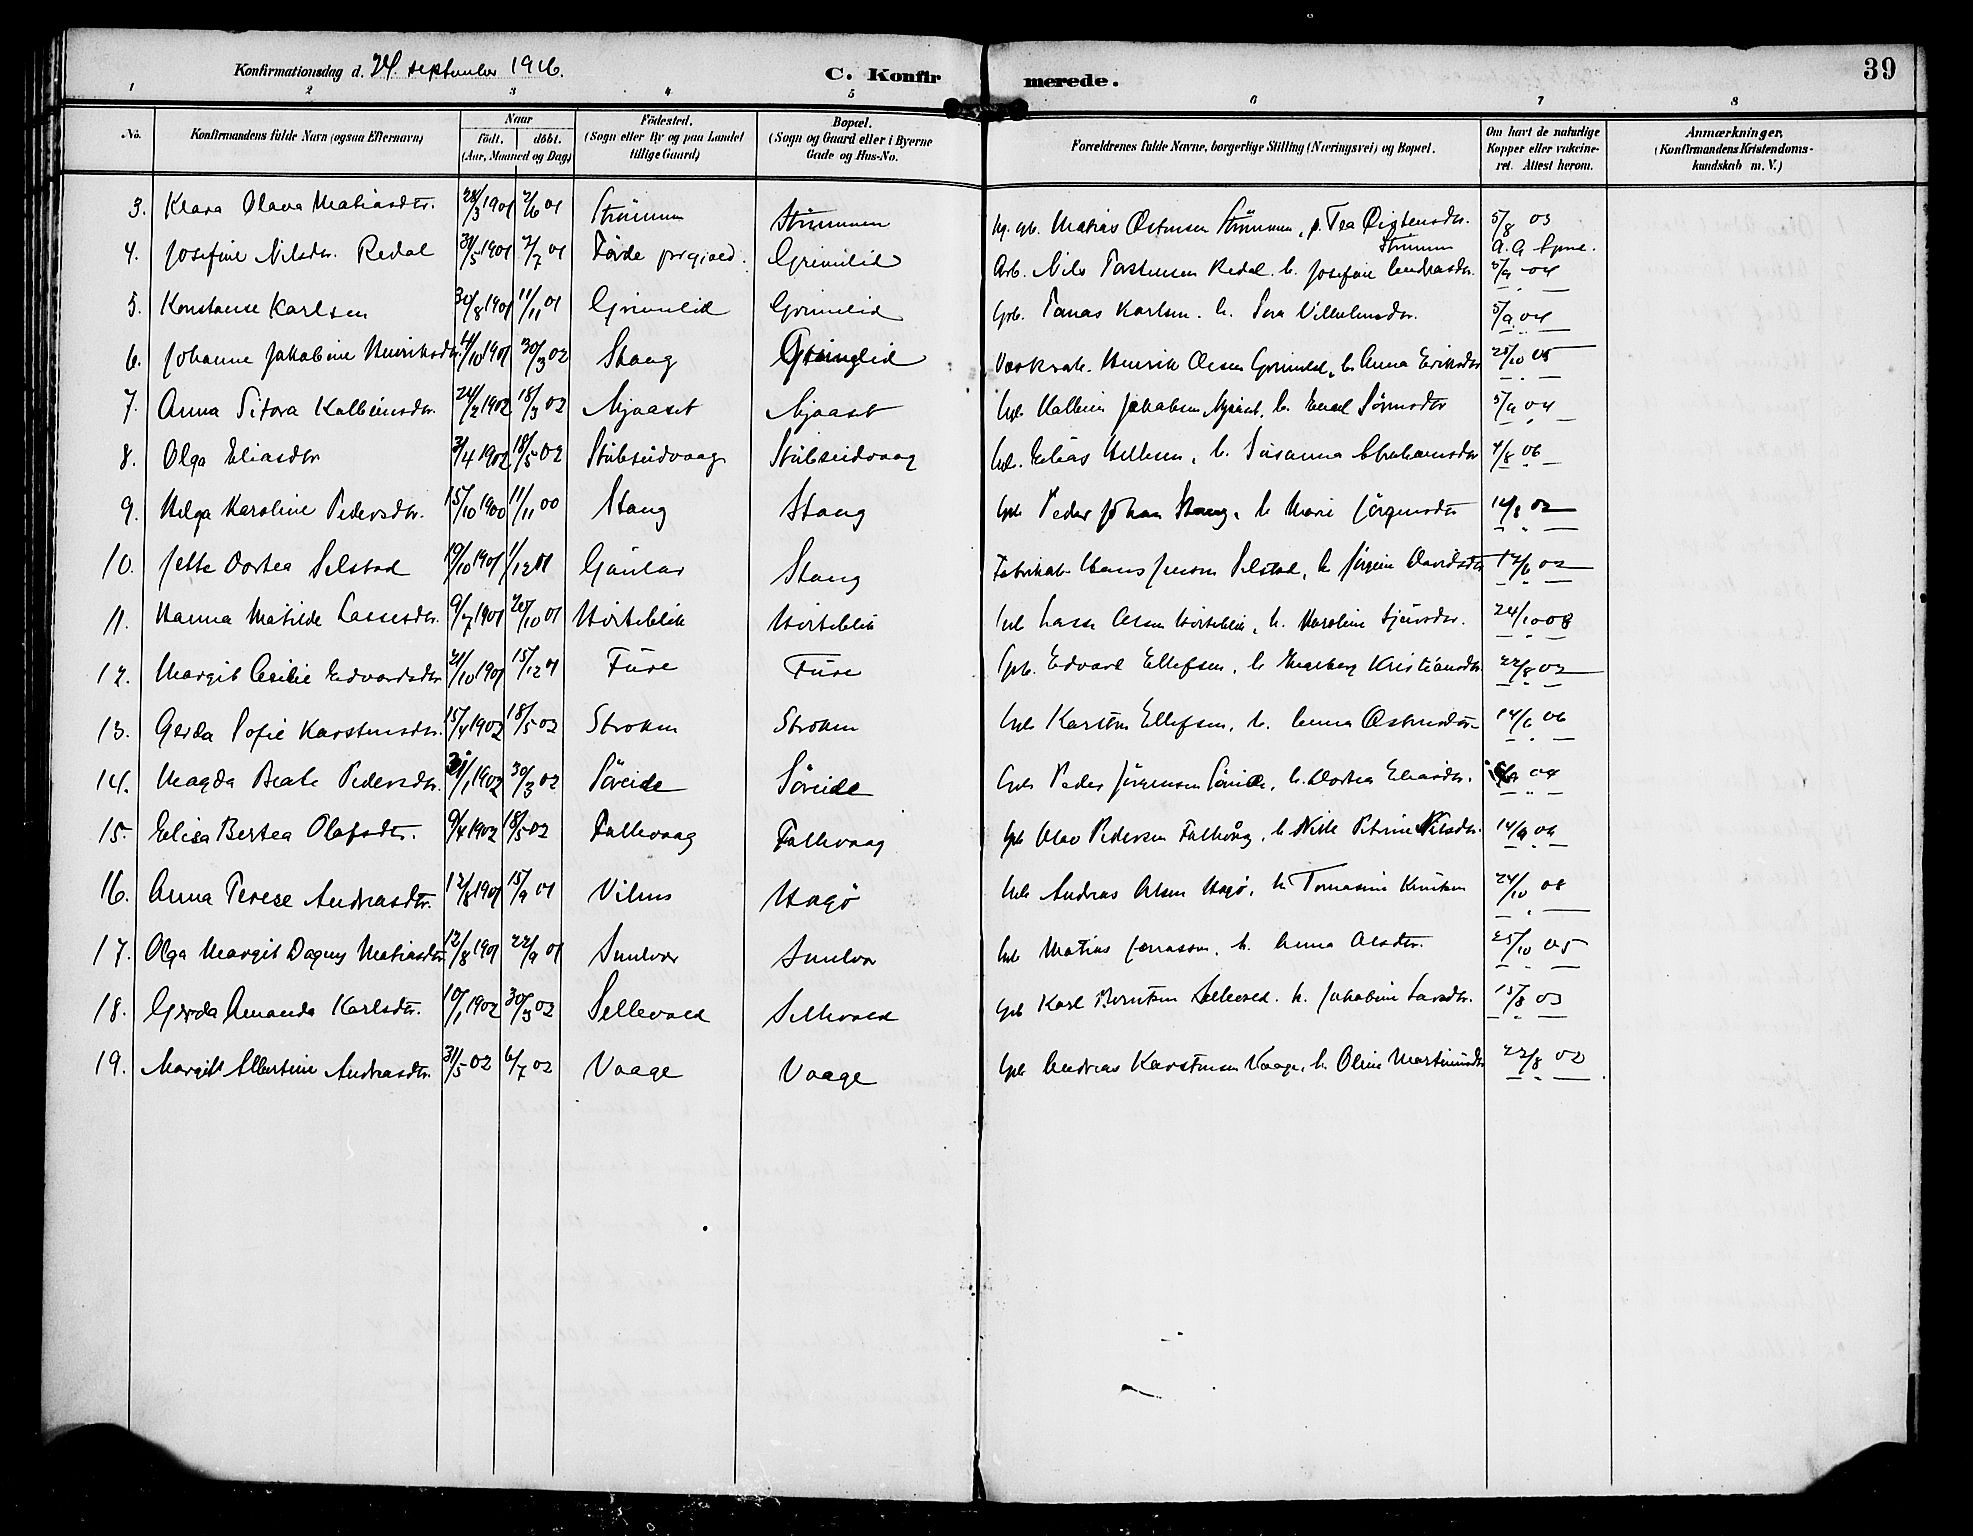 Konfirmationsdag d. 24. september 1916.
C. Konfirmerede.
39
1 2 3 4 5 6 7 8
No.
Konfirmandens fulde Navn (ogsaa Efternavn)
Naar
födt. döbt.
(Aar, Maaned og Dag)
Födested.
(Sogn eller By og paa Landet tillige Gaard)
Bopæl.
(Sogn og Gaard eller i Byerne Gade og Hus-No.
Forældrenes fulde Navne, borgerlige Stilling (Næringsvei) og Bopæl.
Om havt de naturlige Kopper eller vakcineret. Attest herom.
Anmærkninger,
(Konfirmandens Kristendomskundskab m. V.)
3. Klara Olava Matiasdtr. 28/3 1901 2/6 01 Strömmen Strömmen Matias Strömmen, Tea 5/8 03
Strömmen
4. Josefine Nilsdtr. Redal 31/5 1901 7/7 01 Förde Grimelid Arb. Nils Redal. h. Josefine Andrasdtr. 5/9 04
5. Konstanse Karlsen 11/11 01 Grimelid Grimelid Gbr. Karlsen. h. Vilhelmsdtr. 5/9 04
6. Johanne Jakobine Henriksdtr. 30/3 02 Stang Grimelid Henrik Olsen Grimelid, h. Anna Eriksdtr 25/10 05
7. Anna 24/2 1902 18/3 02 Njaaset Njaaset Jakobsen h. 5/9 04
8. Olga Eliasdtr 3/4 1902 18/5 02 Stubseidvaag Stubseidvaag Elias h. Susanna Abrahamsdtr 4/8 06
9. Helga Karoline Pedersdtr. 15/10 1900 11/11 00 Stang Stang Gbr Peder Johan Stang, h Marie Jörgensdtr 02
10. Jette Dortea Selstad 19/10 1901 1/12 01 Gaular Stang Fabrikarb Hans Jenson Selstad, h Davidsdtr 02
11. Hanna Matilde Lassesdtr. 9/7 1901 20/10 01 Hörteblik Hörteblik Gbr Lasse Olsen Hörteblik, h. Karoline Sjursdtr. 24/10 08
12. Margit Cecilie Edvardsdtr 21/10 1901 15/12 01 Fure Fure Gbr. Edvard Ellefsen, h Ingeborg Kristiansdtr 22/8 02
13. Gerda Sofie Karstensdtr. 15/4 1902 18/5 02 Stroken Stroken Gbr Karsten Ellefsen, h. Anna 06
14. Magda Beate Pedersdtr. 1902 30/3 02 Söreide Söreide Gbr Peder Jörgensen Söreide, h. Dortea Eliasdtr. 04
15. Elisa Bertea Olafsdtr. 9/4 1902 18/5 02 Falkevaag Falkevaag Gbr Olav Pedersen Falkevåg, h Petrine Nilsdtr.
16. Anna Terese Andreasdtr. 12/8 1901 15/9 01 Vilnes Hagö Gbr Andreas Olsen Hagö, h. Tomasine Knutsen 24/10 08
17. Olga Margit Dagny Matiasdtr 12/8 1901 22/9 01 Smelvær Smelvær Gbr Matias h. Anna Olsdtr. 25/10 05
18. Gerda Amanda Karlsdtr. 10/1 1902 30/3 02 Sellevold Sellevold Gbr Karl Berntsen Sellevold. h. Jakobine Larsdtr. 15/8 03
19. Margit Albertine Andreasdtr. 31/5 02 6/7 02 Vaage Vaage Gbr Andreas Karstensen Vaage, h. Oline Martinusdtr 22/8 02